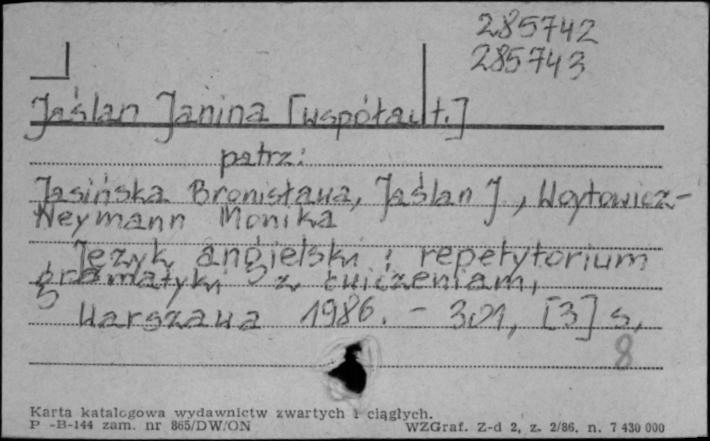 285742
285743
Jaślan Janina [współaut.]
patrz:
Jasińska Bronisława, Jaślan J., Wojtowicz-
Neymann Monika
Język angielski : repetytorium
gramatyki z ćwiczeniami,
Warszawa 1986. - 301, [3] s,
8
Karta katalogowa wydawnictw zwartych i ciągłych.
P -B-144 zam. nr 865/DW/ON WZGraf. Z-d 2, z. 2/86, n. 7 430 000